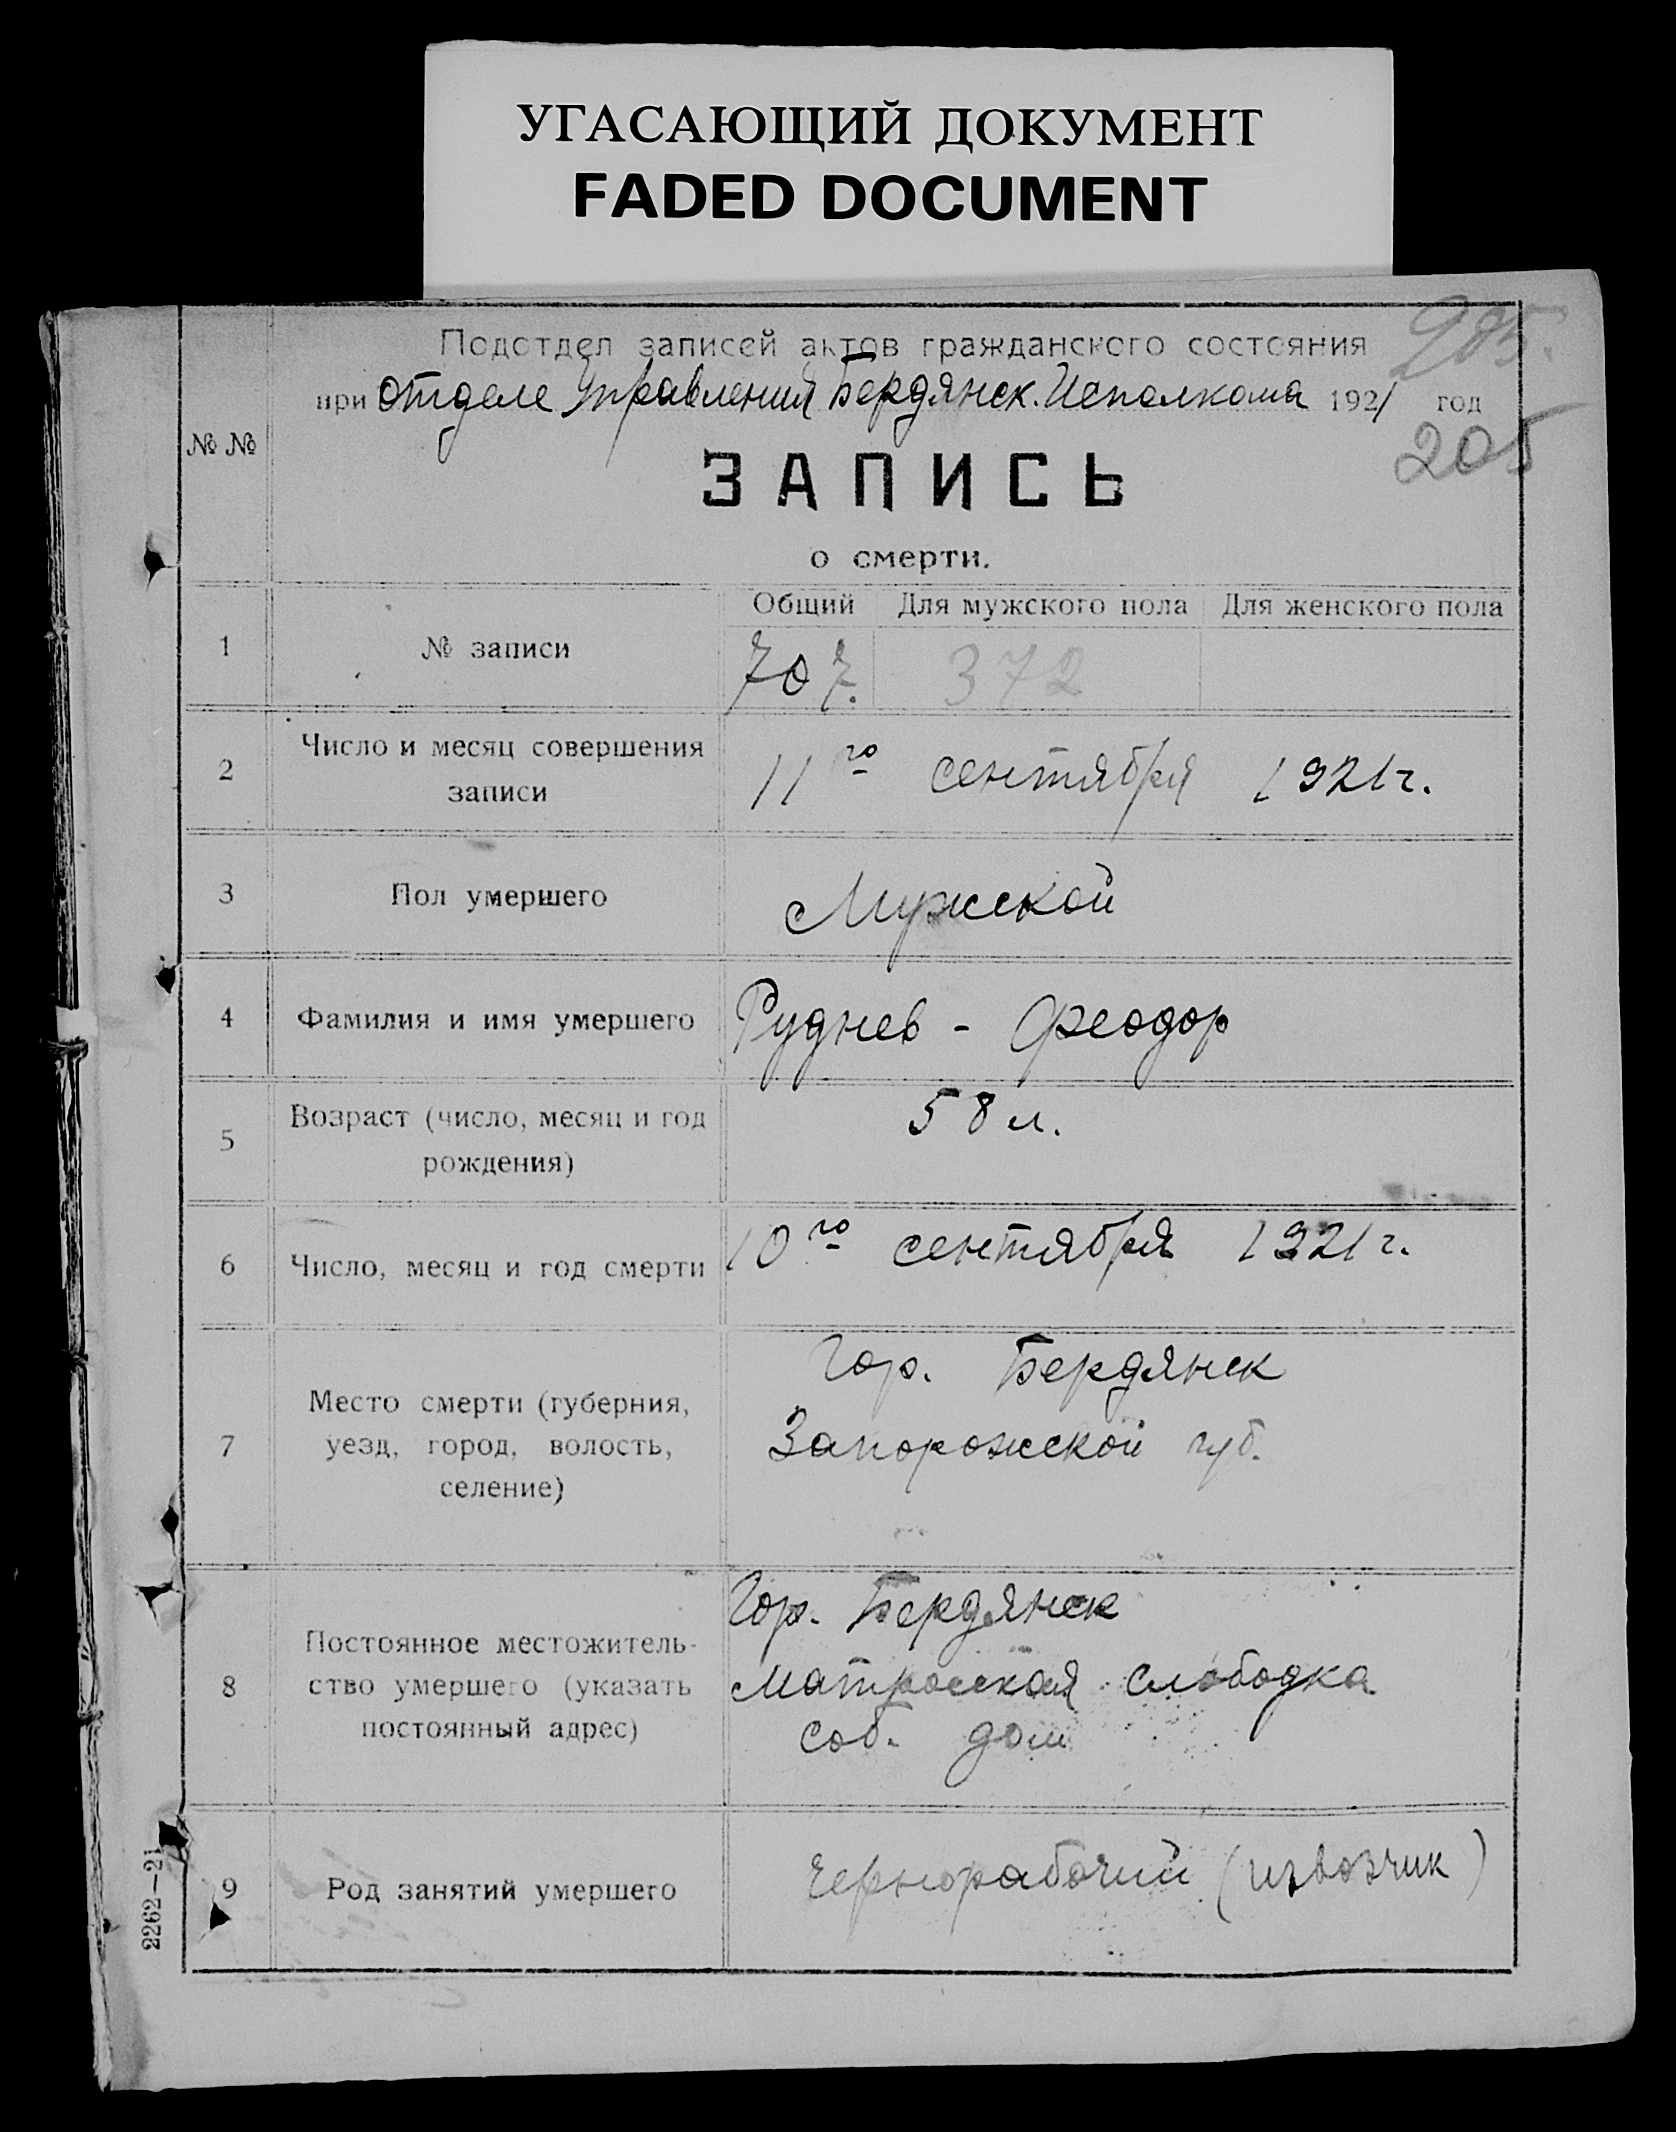 УГАСАЮЩИЙ ДОКУМЕНТ
FADED DOCUMENT
205.
Подотдел записей актов гражданского состояния
при отделе Управления Бердянск. Исполкома 1921 год
205
№ №
ЗАПИСЬ
о смерти.
Общий Для мужского пола Для женского пола
1 № записи 707. 372
2 Число и месяц совершения
записи
11го сентября 1921 г.
3 Пол умершего Мужской
4 Фамилия и имя умершего Руднев - Феодор
5 Возраст (число, месяц и год
рождения)
58 л.
6 Число, месяц и год смерти 10го сентября 1921 г.
7 Место смерти (губерния,
уезд, город, волость,
селение)
Гор. Бердянск
Запорожской губ.
8 Постоянное местожитель-
ство умершего (указать
постоянный адрес)
Гор. Бердянск
Матросская слободка
соб. дом
9 Род занятий умершего Чернорабочий (извозчик)
2262—21